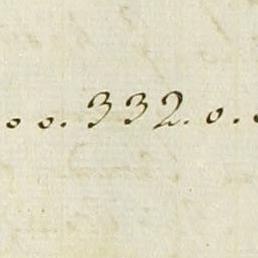 o o. 332. o.